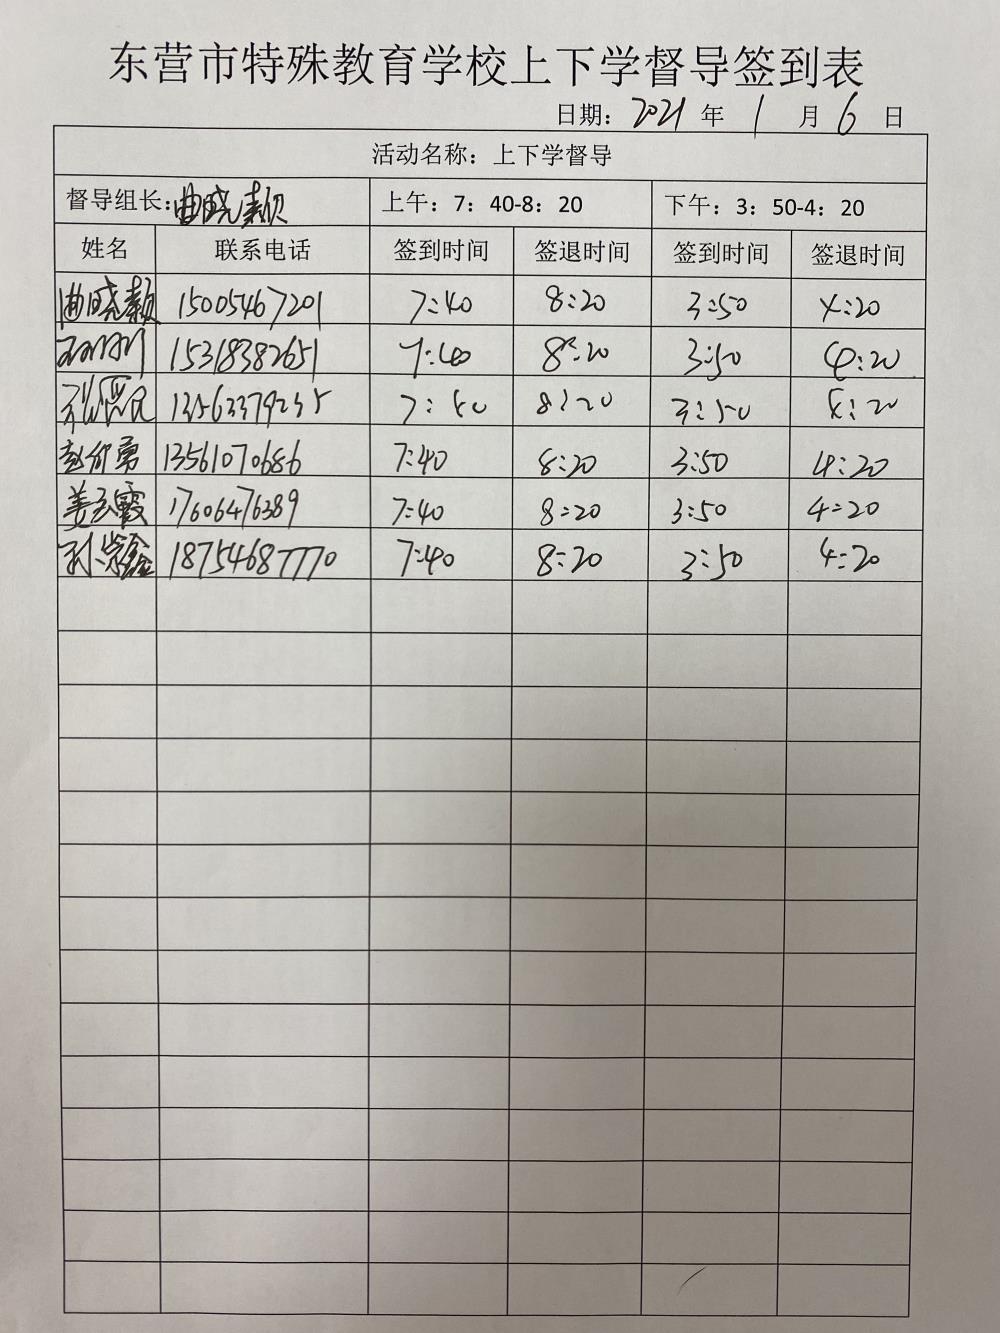 东营市特殊教育学校上下学督导签到表
日期：2021 年 1 月 6 日
活动名称：上下学督导
督导组长：曲晓颖 上午：7：40-8：20 下午：3：50-4：20
姓名 联系电话 签到时间 签退时间 签到时间 签退时间
曲晓颖 15005467201 7:40 8:20 3:50 4:20
15318382651 7:40 8:20 3:50 4:20
7:40 8:20 3:50 4:20
赵仰勇 13561070686 7:40 8:20 3:50 4:20
姜玉霞 17606476389 7:40 8:20 3:50 4:20
18754687770 7:40 8:20 3:50 4:20